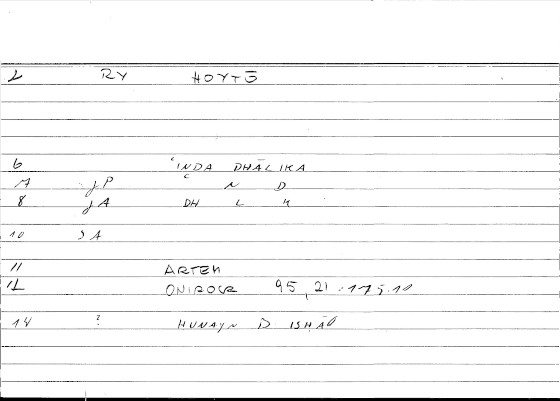 2 RY HOYTŌ
6 ʿINDA DHĀLIKA
7 jP N D
8 jA DH L K
10 JA
11 ARTEM
12 ONIROCR 95, 21 - 175.10
14 ? HUNAYN D ISHĀQ